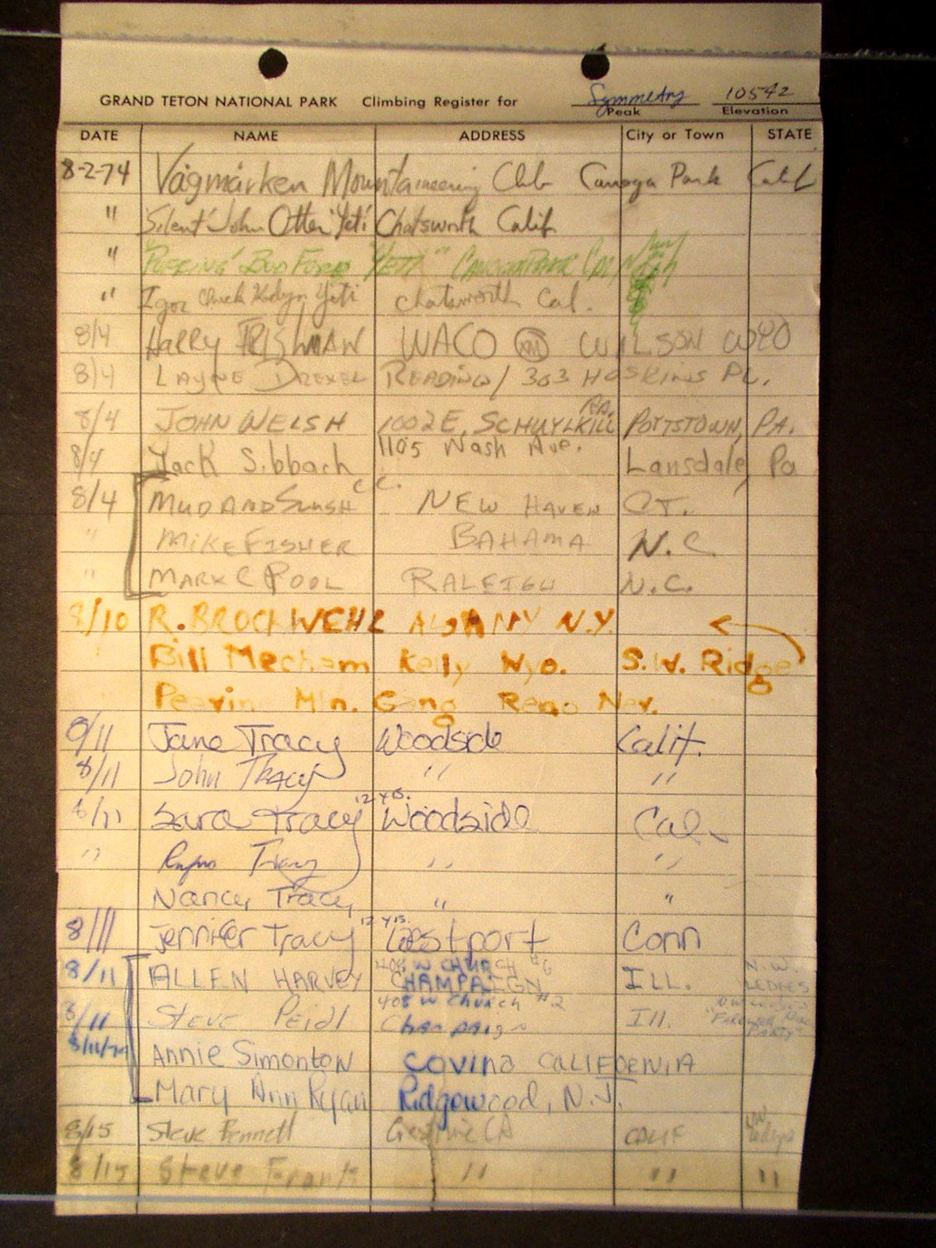 GRAND TETON NATIONAL PARK Climbing Register for Symmetry 10542
Peak Elevation
DATE NAME ADDRESS City or Town STATE
8-2-74 Vågmarken Mountaineering Club Canoga Park Calif
" Silent John Otter Yeti Chatsworth Calif
" Bud Ford "Yeti"
" Igor Chuck Yeti Chatsworth Cal.
8/4 Harry FRISHMAN WACO WILSON WYO
8/4 LAYNE DREXEL READING / 303 HOSKINS PL.
8/4 JOHN WELSH 1002 E. SCHUYLKILL RD. POTTSTOWN, PA.
8/4 Jack Sibbach 1105 Nash Ave. Lansdale, Pa
8/4 MUD AND SLUSH C.C. NEW HAVEN CT.
" MIKE FISHER BAHAMA N.C.
" MARK C POOL RALEIGH N.C.
8/10 R. BROCKWEHL ALBANY N.Y.
Bill Mecham Kelly Wyo. S.W. Ridge
Peavine Mtn. Gang Reno Nev.
8/11 Jane Tracy Woodside Calif.
8/11 John Tracy " "
8/11 Sara Tracy 12 yrs. Woodside Cal
" Rufus Tracy " "
Nancy Tracy " "
8/11 Jennifer Tracy 12 yrs. Westport Conn
8/11 ALLEN HARVEY 408 W CHURCH #6 CHAMPAIGN ILL. N.W. LEDGES
8/11 Steve Peidl 408 W Church #2 Champaign Ill. PARTY"
8/11/74 Annie Simonton COVINA CALIFORNIA
Mary Ann Ryan Ridgewood, N.J.
8/15 Steve Bennett CALIF NW Ledges
8/15 Steve Frank " " "